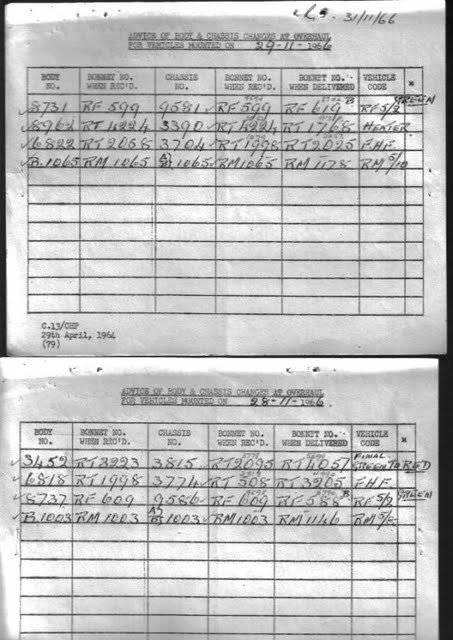 31/11/66
ADVICE OF BODY & CHASSIS CHANGES AT OVERHAUL
FOR VEHICLES MOUNTED ON 29-11-1966
BODY NO. BONNET NO. WHEN REC'D. CHASSIS NO. BONNET NO. WHEN REC'D. BONNET NO. WHEN DELIVERED VEHICLE CODE *
8731 RF 599 9581 RF 599 RF 619 B RF 5/2 GREEN
8962 RT 4224 3390 RT 4224 RT 1768 HEATER
6822 RT 2058 3704 RT 1998 RT 2025 FHF
B.1065 RM 1065 1065 RM 1065 RM 1178 RM 5/10
C.13/CHP
29th April, 1964
(79)
ADVICE OF BODY & CHASSIS CHANGES AT OVERHAUL
FOR VEHICLES MOUNTED ON 28-11-1966
BODY NO. BONNET NO. WHEN REC'D. CHASSIS NO. BONNET NO. WHEN REC'D. BONNET NO. WHEN DELIVERED VEHICLE CODE *
3459 RT 3223 3815 RT 2095 RT 4057 FINAL GREEN TO RED
6818 RT 1998 3774 RT 508 RT 3205 FHF
8737 RF 609 9586 RF 609 RF 588 B RF 5/2 GREEN
B.1003 RM 1003 1003 RM 1003 RM 1146 RM 5/5